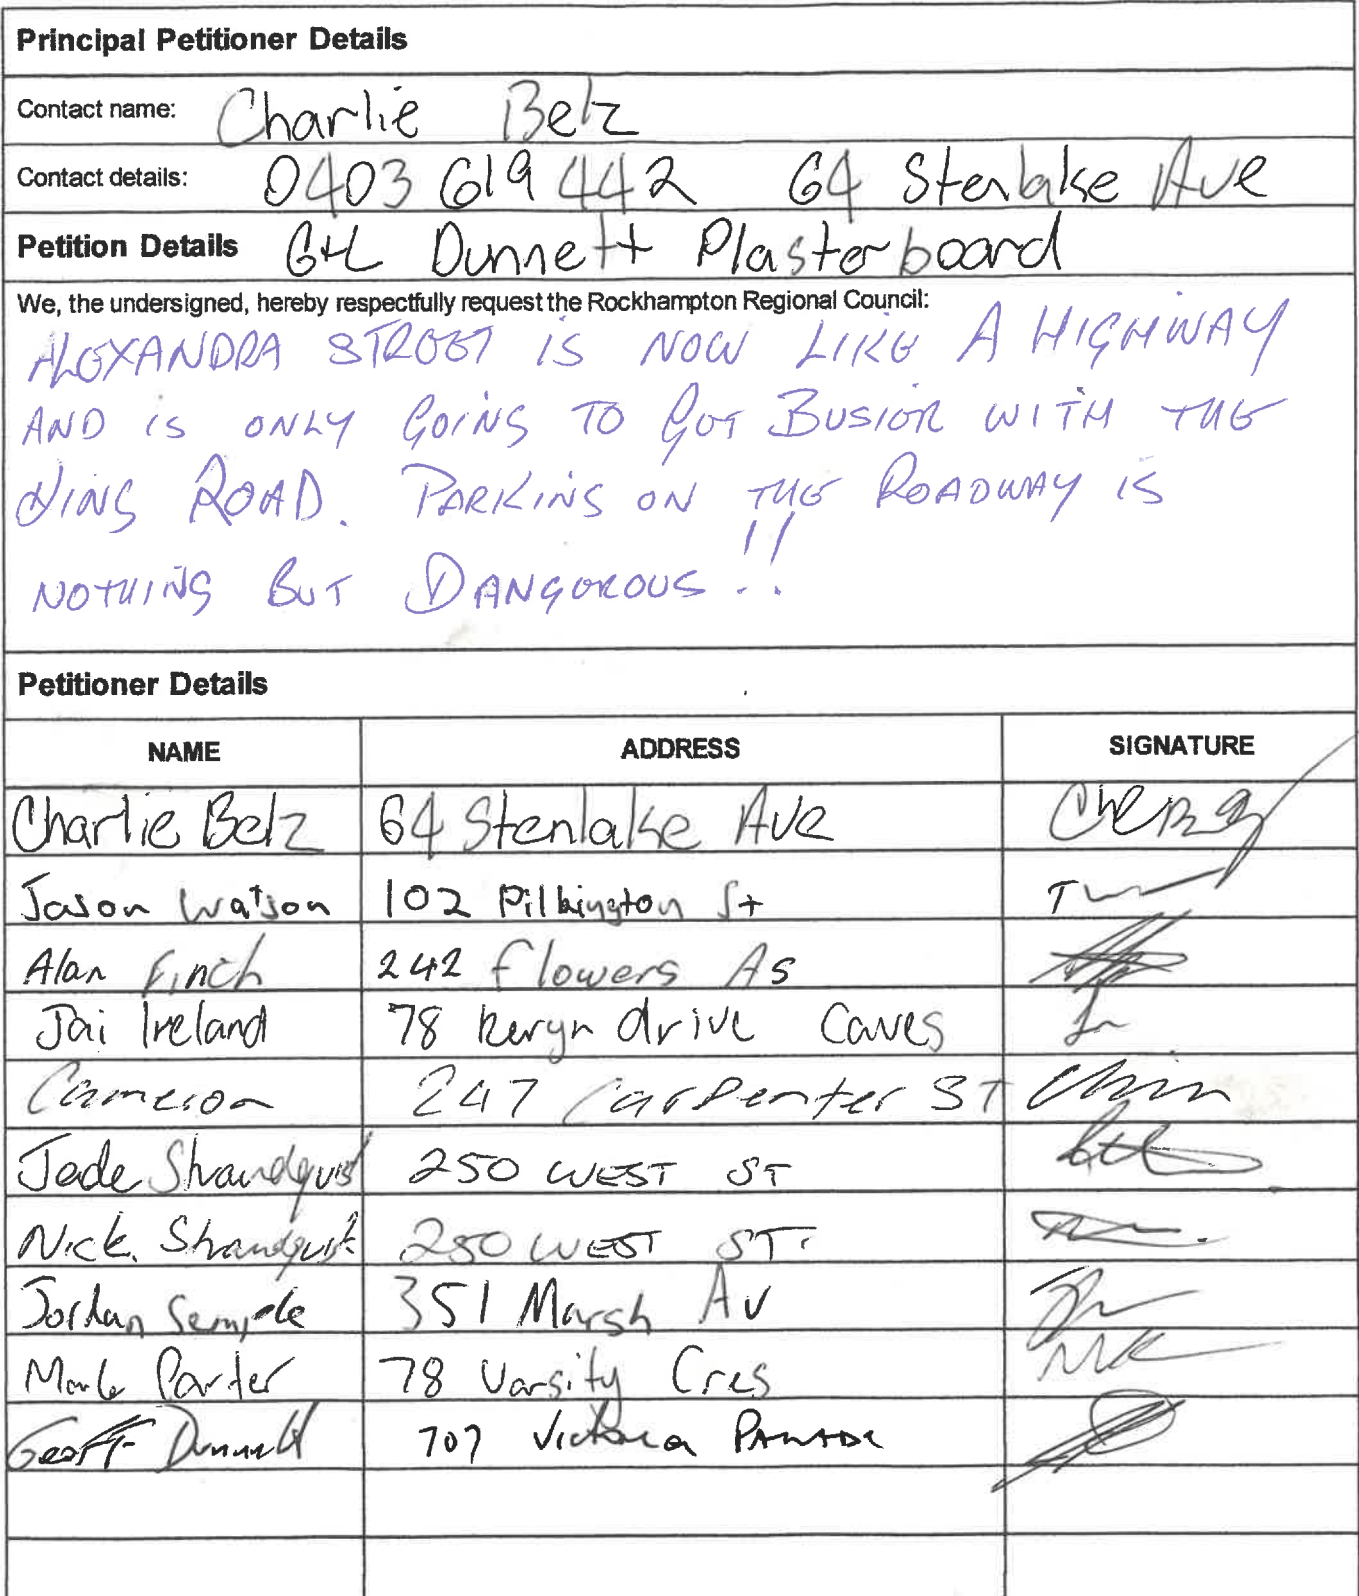 Principal Petitioner Details
Contact name: Charlie Belz
Contact details: 0403 619 442 64 Stenlake Ave
Petition Details G+L Dunnett Plasterboard
We, the undersigned, hereby respectfully request the Rockhampton Regional Council:
ALEXANDRA STREET IS NOW LIKE A HIGHWAY
AND IS ONLY GOING TO GET BUSIER WITH THE
RING ROAD. PARKING ON THE ROADWAY IS
NOTHING BUT DANGEROUS!!
Petitioner Details
NAME ADDRESS SIGNATURE
Charlie Belz 64 Stenlake Ave
Jason Watson 102 Pilkington St
Alan Finch 242 flowers As
Jai Ireland 78 Keryn drive Caves
Cameron 247 Carpenter ST
Jade Strandquist 250 WEST ST
Nick. Strandquist 250 WEST ST.
Jordan Semple 351 Marsh Av
Mark Parter 78 Varsity Cres
Geoff Dunnett 707 Victoria PARADE